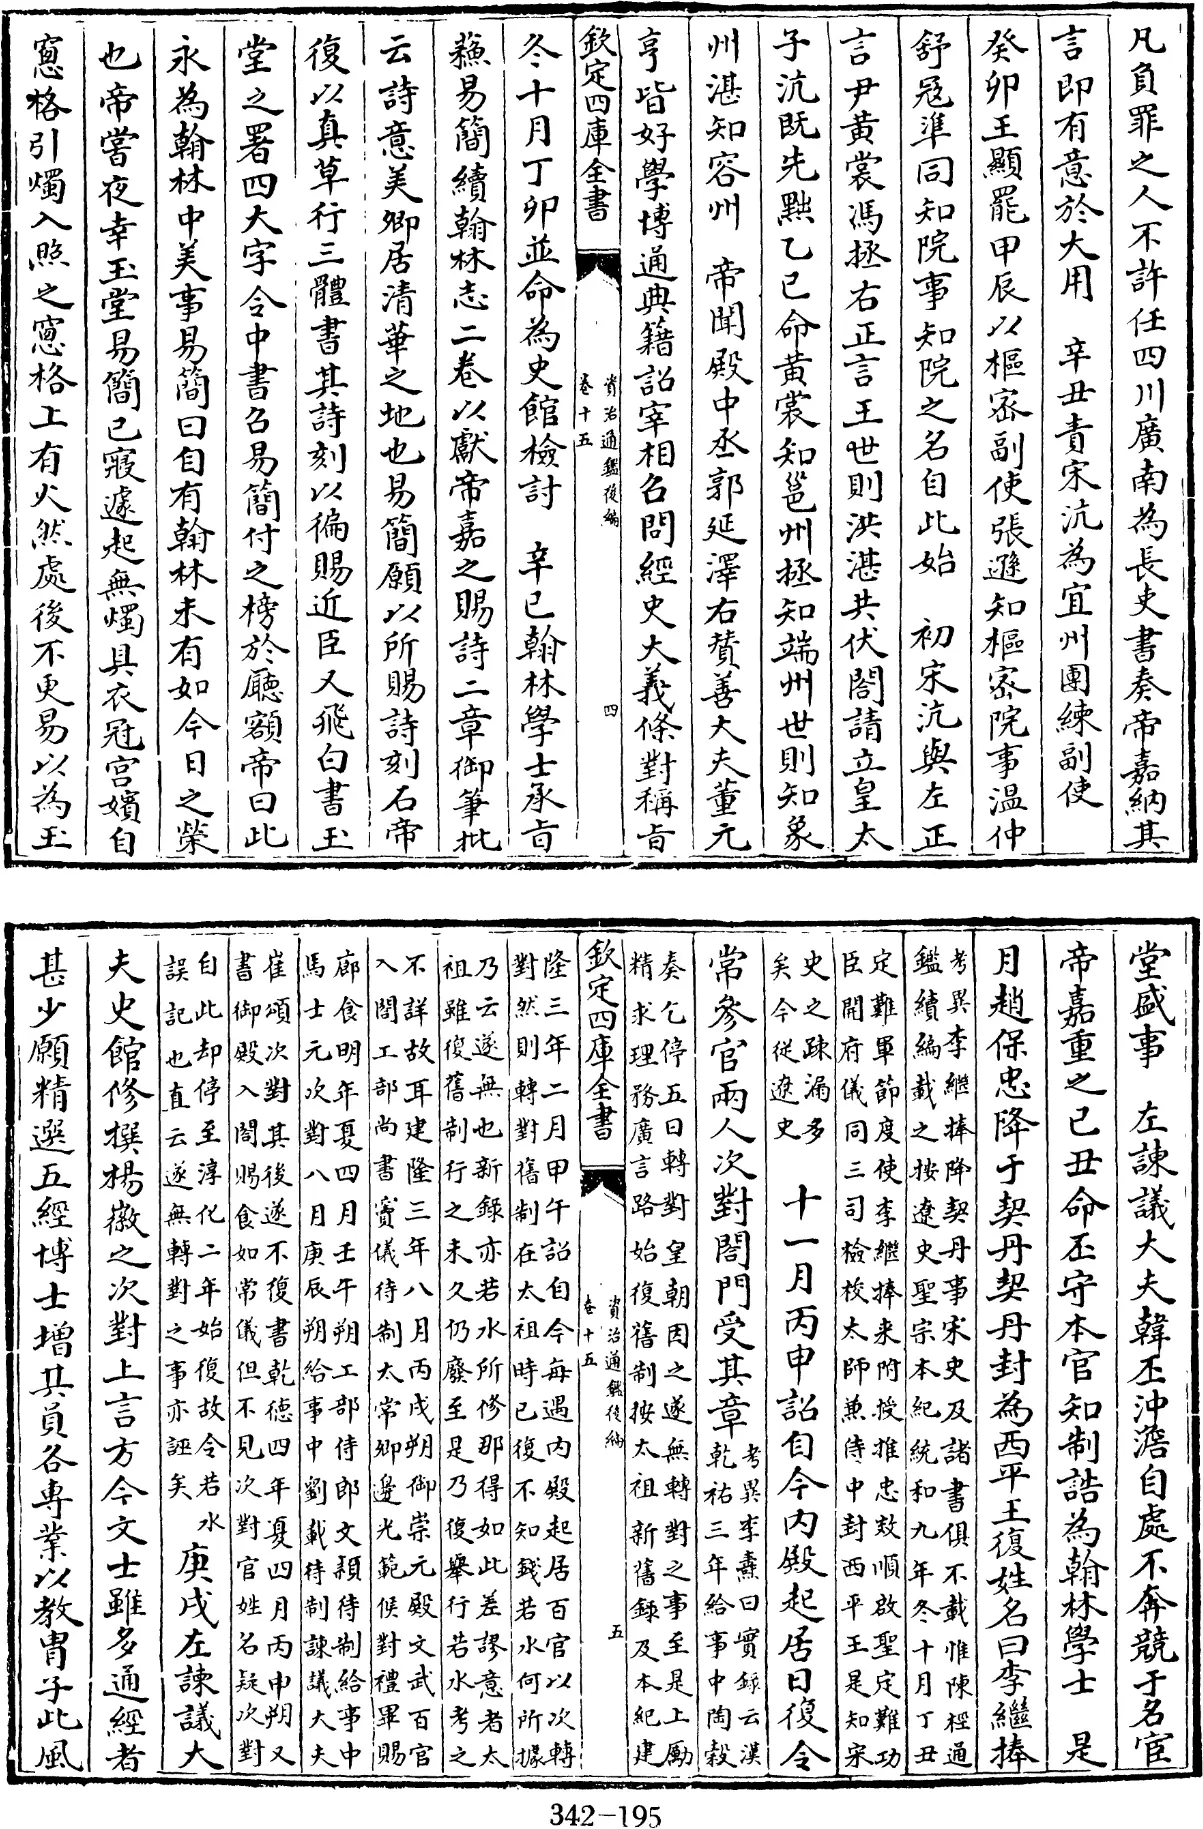 凡負罪之人不許任四川廣南為長吏書奏帝嘉納其
言即有意於大用　辛丑責宋沆為宜州團練副使
癸卯王顯罷甲辰以樞密副使張遜知樞密院事溫仲
舒寇準同知院事知院之名自此始　初宋沆與左正
言尹黄裳馮拯右正言王世則洪湛共伏閤請立皇太
子沆既先黜乙巳命黄裳知邕州拯知端州世則知象
州湛知容州　帝聞殿中丞郭延澤右贊善大夫董元
亨皆好學博通典籍詔宰相召問經史大義條對稱㫖
欽定四庫全書
資治通鑑後編
卷十五
四
冬十月丁卯並命為史館檢討　辛巳翰林學士承㫖
蘇易簡續翰林志二卷以獻帝嘉之賜詩二章御筆批
云詩意美卿居清華之地也易簡願以所賜詩刻石帝
復以真草行三體書其詩刻以徧賜近臣又飛白書玉
堂之署四大字令中書召易簡付之榜於廳額帝曰此
永為翰林中美事易簡曰自有翰林未有如今日之榮
也帝嘗夜幸玉堂易簡已寢遽起無燭具衣冠宫嬪自
窻格引燭入照之窻格上有火然處後不更易以為玉
堂盛事　左諫議大夫韓丕沖澹自處不奔競于名宦
帝嘉重之己丑命丕守本官知制誥為翰林學士　是
月趙保忠降于契丹契丹封為西平王復姓名曰李繼捧
考異李繼捧降契丹事宋史及諸書俱不載惟陳桱通
鑑續編載之按遼史聖宗本紀統和九年冬十月丁丑
定難軍節度使李繼捧來附授推忠效順啟聖定難功
臣開府儀同三司檢校太師兼侍中封西平王是知宋
史之疎漏多
矣今從遼史　十一月丙申詔自今内殿起居日復令
常參官兩人次對閤門受其章考異李燾曰實録云漢
乾祐三年給事中陶穀
奏乞停五日轉對皇朝因之遂無轉對之事至是上勵
精求理務廣言路始復舊制按太祖新舊録及本紀建
欽定四庫全書
資治通鑑後編
卷十五
五
隆三年二月甲午詔自今每遇内殿起居百官以次轉
對然則轉對舊制在太祖時已復不知錢若水何所據
乃云遂無也新録亦若水所修那得如此差謬意者太
祖雖復舊制行之未久仍廢至是乃復舉行若水考之
不詳故耳建隆三年八月丙戌朔御崇元殿文武百官
入閤工部尚書竇儀待制太常卿邊光範候對禮畢賜
廊食明年夏四月壬午朔工部侍郎文穎待制給事中
馬士元次對八月庚辰朔給事中劉載待制諫議大夫
崔頌次對其後遂不復書乾德四年夏四月丙申朔又
書御殿入閤賜食如常儀但不見次對官姓名疑次對
自此却停至淳化二年始復故令若水
誤記也直云遂無轉對之事亦誣矣　庚戌左諫議大
夫史館修撰楊徽之次對上言方今文士雖多通經者
甚少願精選五經博士增其員各專業以教胄子此風
342-195